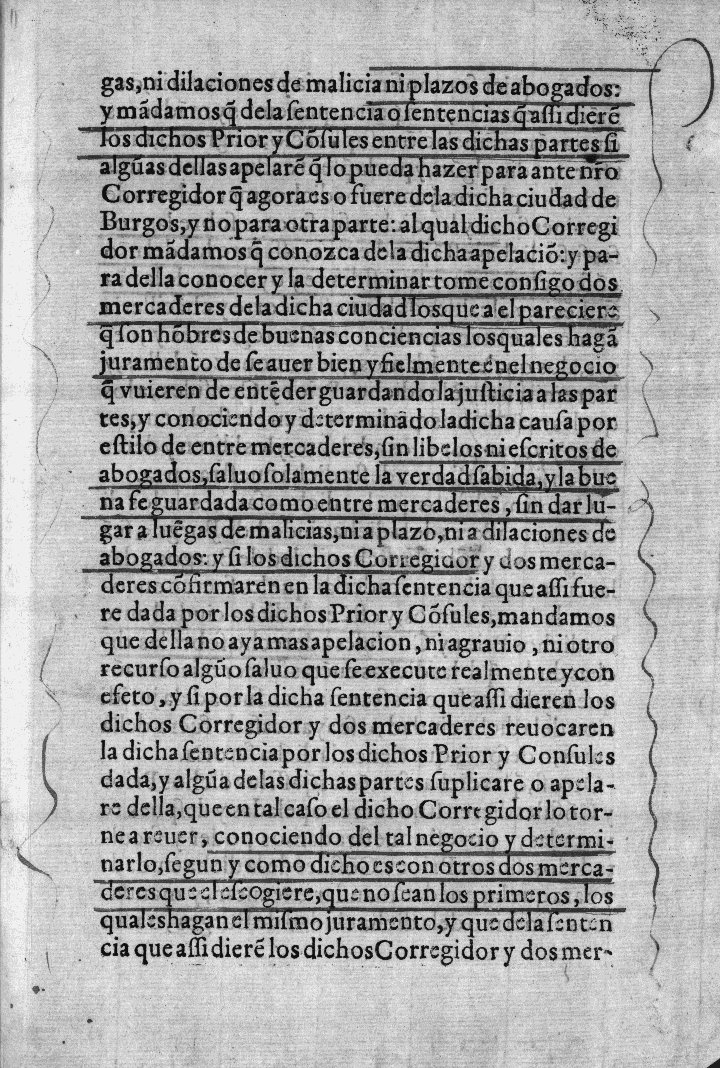 gas, ni dilaciones de malicia ni plazos de abogados:
y mādamos q̄ dela ſentencia o ſentencias q̄ aſſi dierē
los dichos Prior y Cōſules entre las dichas partes ſi
algūas dellas apelarē q̄ lo pueda hazer para ante nr̄o
Corregidor q̄ agora es o fuere dela dicha ciudad de
Burgos, y no para otra parte: al qual dicho Corregi
dor mādamos q̄ conozca de la dicha apelaciō: y pa-
ra della conocer y la determinar tome conſigo dos
mercaderes dela dicha ciudad los que a el pareciere
q̄ ſon hōbres de buenas conciencias los quales hagā
juramento de ſe auer bien y fielmente ēnel negocio
q̄ vuieren de entēder guardando la juſticia a las par
tes, y conociendo y determinādo la dicha cauſa por
eſtilo de entre mercaderes, ſin libelos ni eſcritos de
abogados, ſaluo ſolamente la verdad ſabida, y la bue
na fe guardada como entre mercaderes, ſin dar lu-
gar a luēgas de malicias, ni a plazo, ni a dilaciones de
abogados: y ſi los dichos Corregidor y dos merca-
deres cōfirmaren en la dicha ſentencia que aſſi fue-
re dada por los dichos Prior y Cōſules, mandamos
que della no aya mas apelacion, ni agrauio, ni otro
recurſo algūo ſaluo que ſe execute realmente y con
efeto, y ſi por la dicha ſentencia que aſſi dieren los
dichos Corregidor y dos mercaderes reuocaren
la dicha ſentencia por los dichos Prior y Conſules
dada, y algūa delas dichas partes ſuplicare o apela-
re della, que en tal caſo el dicho Corregidor lo tor-
ne a reuer, conociendo del tal negocio y determi-
narlo, ſegun y como dicho es con otros dos merca-
deres que el eſcogiere, que no ſean los primeros, los
quales hagan el miſmo juramento, y que dela ſenten
cia que aſſi dierē los dichos Corregidor y dos mer-